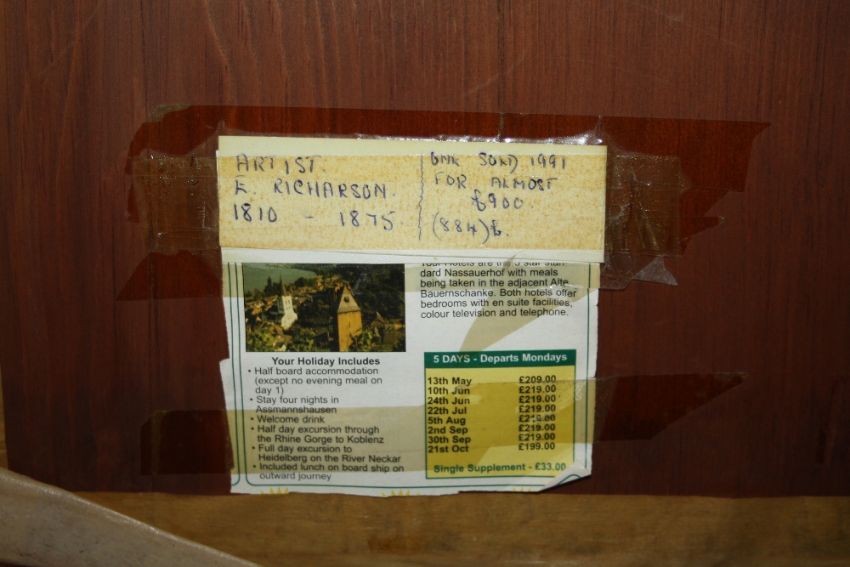 ARTIST.
E. RICHARSON.
1810 - 1875
ONE SOLD 1991
FOR ALMOST
£900.
(884)£.
dard Nassauerhof with meals
being taken in the adjacent Alte
Bauernschanke. Both hotels offer
bedrooms with en suite facilities,
colour television and telephone.
Your Holiday Includes
• Half board accommodation
(except no evening meal on
day 1)
• Stay four nights in
Assmannshausen
• Welcome drink
• Half day excursion through
the Rhine Gorge to Koblenz
• Full day excursion to
Heidelberg on the River Neckar
• Included lunch on board ship on
outward journey
5 DAYS - Departs Mondays
13th May £209.00
10th Jun £219.00
24th Jun £219.00
22th Jul £219.00
5th Aug £219.00
2nd Sep £219.00
30th Sep £219.00
21st Oct £199.00
Single Supplement - £33.00